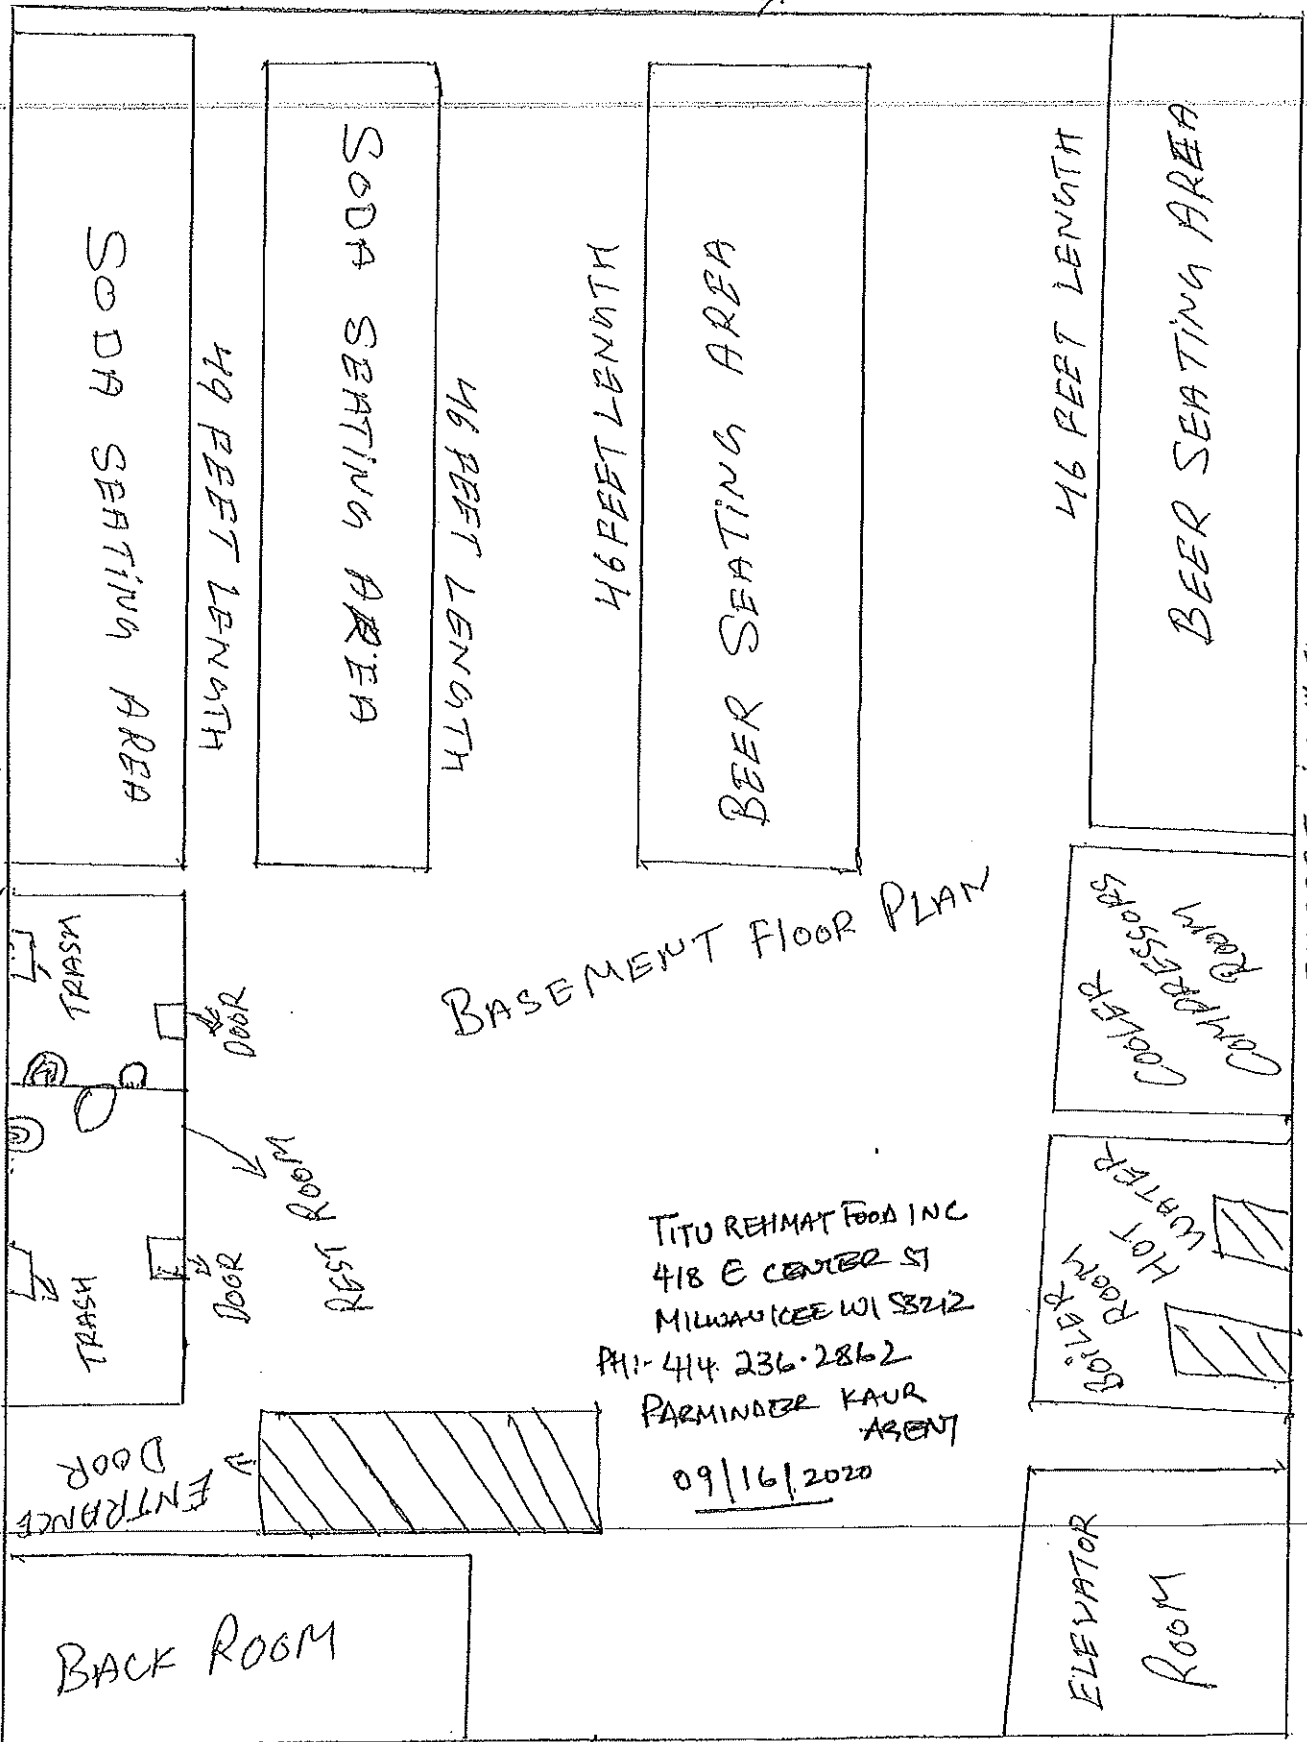 SODA SEATING AREA
49 FEET LENGTH
SODA SEATING AREA
46 FEET LENGTH
46 FEET LENGTH
BEER SEATING AREA
46 FEET LENGTH
BEER SEATING AREA
BASEMENT FLOOR PLAN
TRASH
DOOR
REST ROOM
DOOR
TRASH
COOLER
COMPRESSORS
ROOM
BOILER
ROOM
HOT
WATER
TITU REHMAT FOOD INC
418 E CENTER ST
MILWAUKEE WI 53212
PH:- 414.236.2862
PARMINDER KAUR
AGENT
09/16/2020
ENTRANCE
DOOR
BACK ROOM
ELEVATOR
ROOM